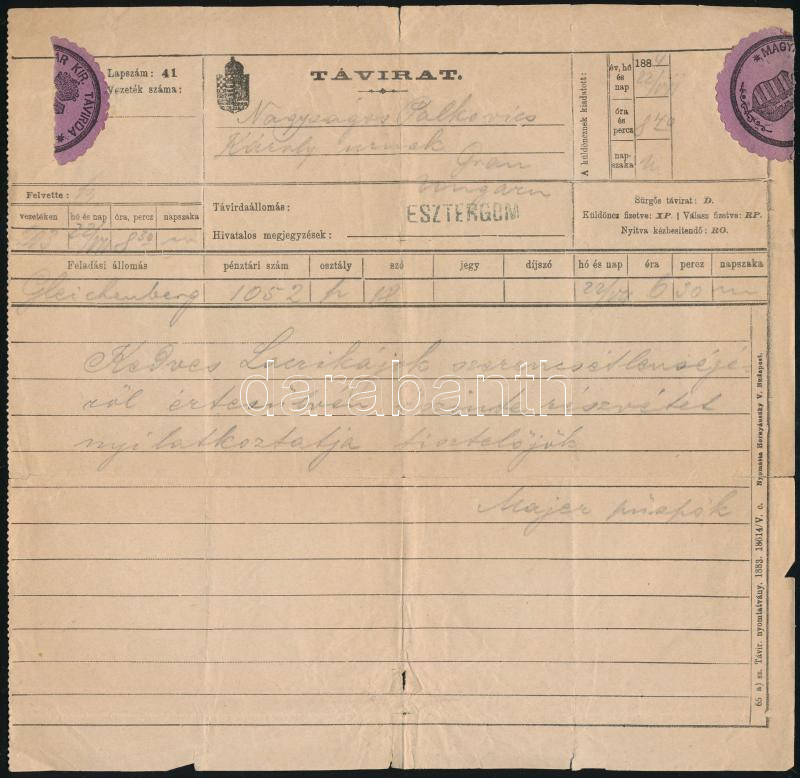 Lapszám: 41
Vezeték száma:
TÁVIRAT.
Nagyságos Palkovics
Károly urnak
Gran
Ungarn
ESZTERGOM
A küldöncznek kiadatott:
év, hó és nap
188
22/
óra és percz
8 40
napszaka
MAGY
AR KIR. TÁVIRDA
Felvette:
vezetéken
hó és nap
óra, percz
napszaka
22/
8 30
Távirdaállomás:
Hivatalos megjegyzések:
Sürgős távirat: D.
Küldöncz fizetve: XP. | Válasz fizetve: RP.
Nyitva kézbesitendő: RO.
Feladási állomás
pénztári szám
osztály
szó
jegy
díjszó
hó és nap
óra
percz
napszaka
Gleichenberg
1052
p
18
22/
6
30
Kedves szerencsétlenségé-
ről értesülvén részvétét
nyilatkoztatja tisztelőjök
Majer püspök
65 a) sz. Távir. nyomtatvány. 1883. 18614/V. c.
Nyomatta Hornyánszky V. Budapest.
darabanth